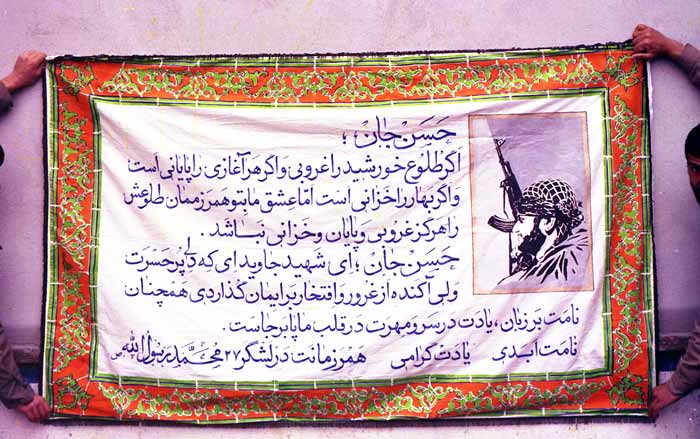 حَسَن جان ؛
اگر طلوع خورشید را غروبی و اگر هر آغازی را پایانی است
و اگر بهار را خزانی است امّا عشق ما بتو همرزممان طلوعش
را هرگز غروبی و پایان و خزانی نباشد .
حَسَن جان ؛ ای شهید جاویدای که دلی پر حسرت
ولی آکنده از غرور و افتخار برایمان گذاردی همچنان
نامت بر زبان ، یادت در سر و مهرت در قلب ما پابرجاست .
نامت ابدی یادت گرامی همرزمانت در لشگر ۲۷ محمّد رسول الله ص